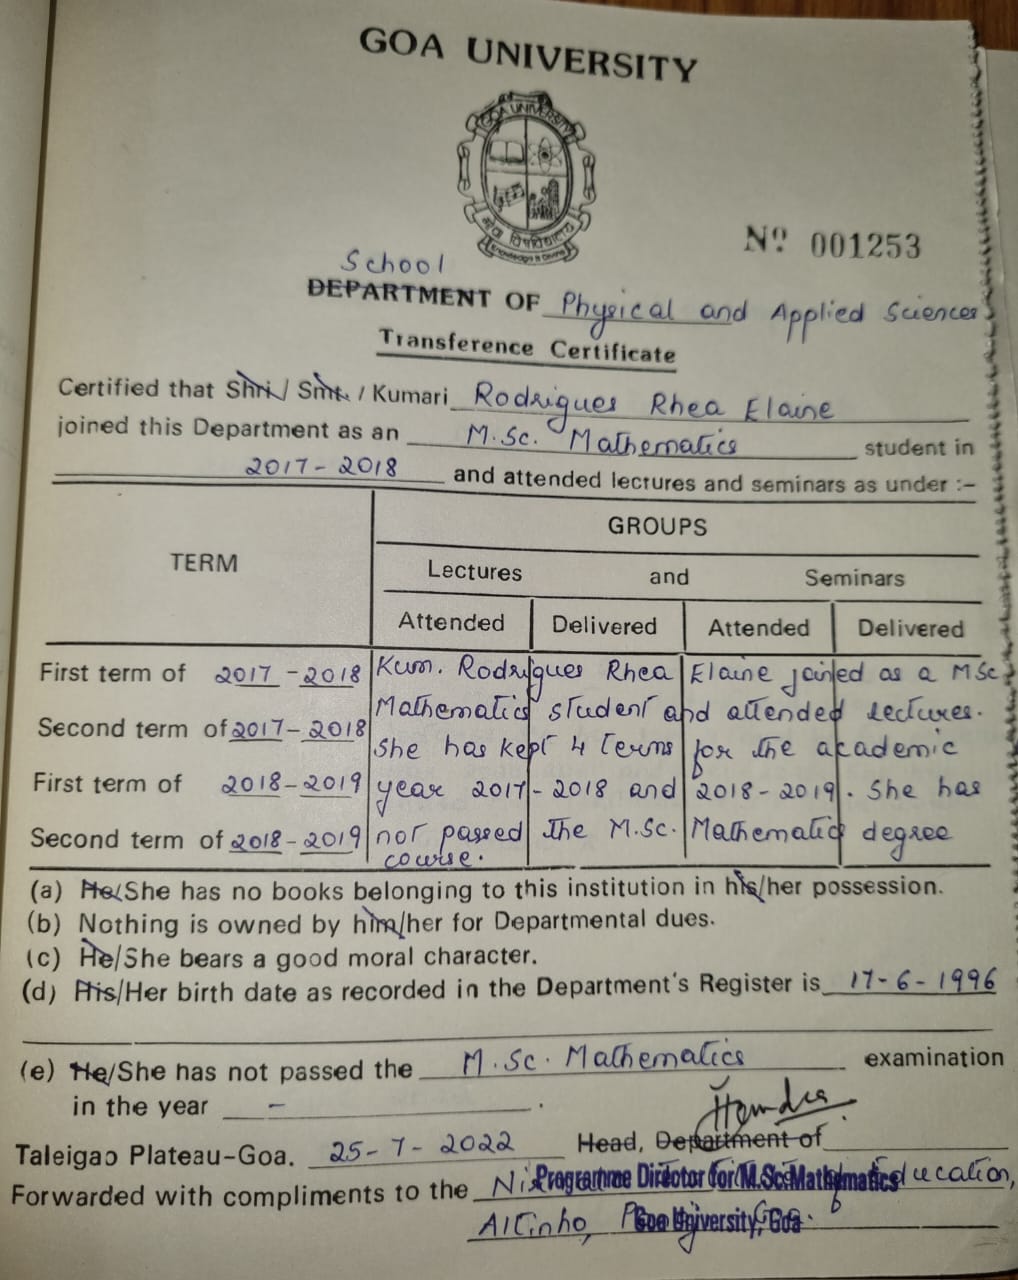 GOA UNIVERSITY
GOA UNIVERSITY
गोंय विद्यापीठ
Knowledge is Divine
Nº 001253
School
DEPARTMENT OF Physical and Applied Sciences
Transference Certificate
Certified that Shri / Smt. / Kumari Rodrigues Rhea Elaine
joined this Department as an M.Sc. Mathematics student in
2017-2018 and attended lectures and seminars as under :-
GROUPS
TERM
Lectures and Seminars
Attended Delivered Attended Delivered
First term of 2017-2018 Kum. Rodrigues Rhea Elaine joined as a MSc
Mathematics student and attended lectures.
Second term of 2017-2018 She has kept 4 terms for the academic
First term of 2018-2019 year 2017-2018 and 2018-2019. She has
Second term of 2018-2019 not passed the M.Sc. Mathematics degree
course.
(a) He/She has no books belonging to this institution in his/her possession.
(b) Nothing is owned by him/her for Departmental dues.
(c) He/She bears a good moral character.
(d) His/Her birth date as recorded in the Department's Register is 17-6-1996
(e) He/She has not passed the M.Sc. Mathematics examination
in the year - .
Taleigao Plateau-Goa. 25-7-2022 Head, Department of
Forwarded with compliments to the Programme Director for M.Sc. Mathematics Education,
Altinho, Goa University, Goa